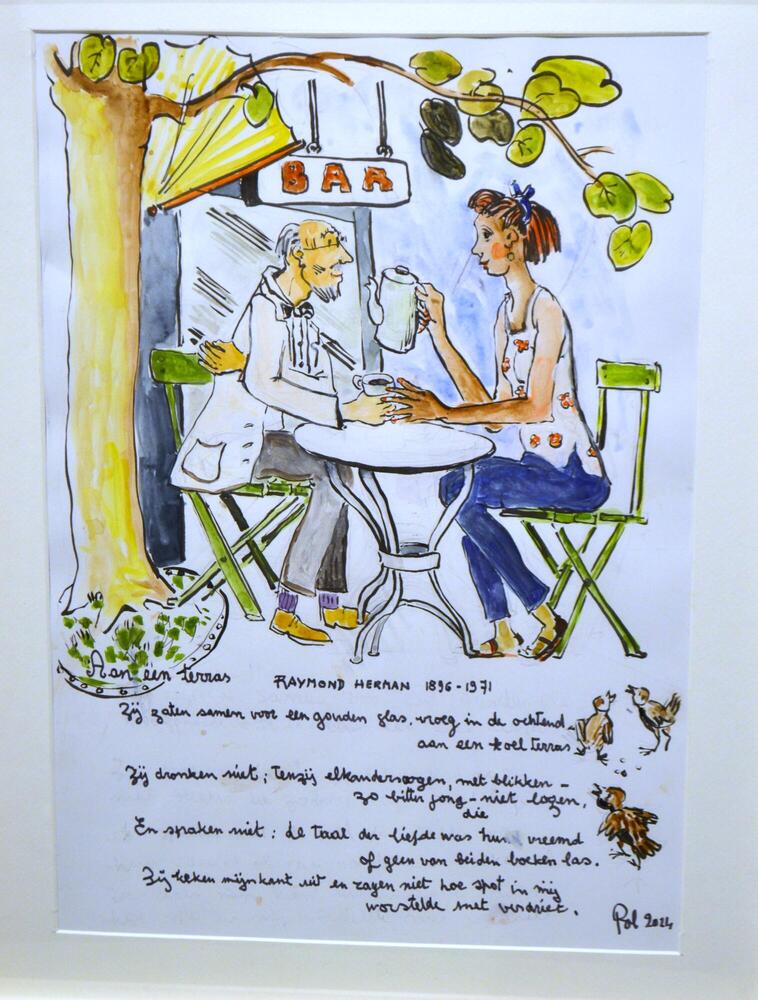 BAR
Aan een terras
RAYMOND HERMAN 1896-1971
Zij zaten samen voor een gouden glas, vroeg in de ochtend,
aan een koel terras
Zij dronken niet; tenzij elkanders ogen, met blikken -
zo bitter jong - niet logen,
die
En spraken niet: de taal der liefde was hun vreemd
of geen van beiden boeken las.
Zij keken mijn kant uit en zagen niet hoe spot in mij
worstelde met verdriet.
Pol 2024